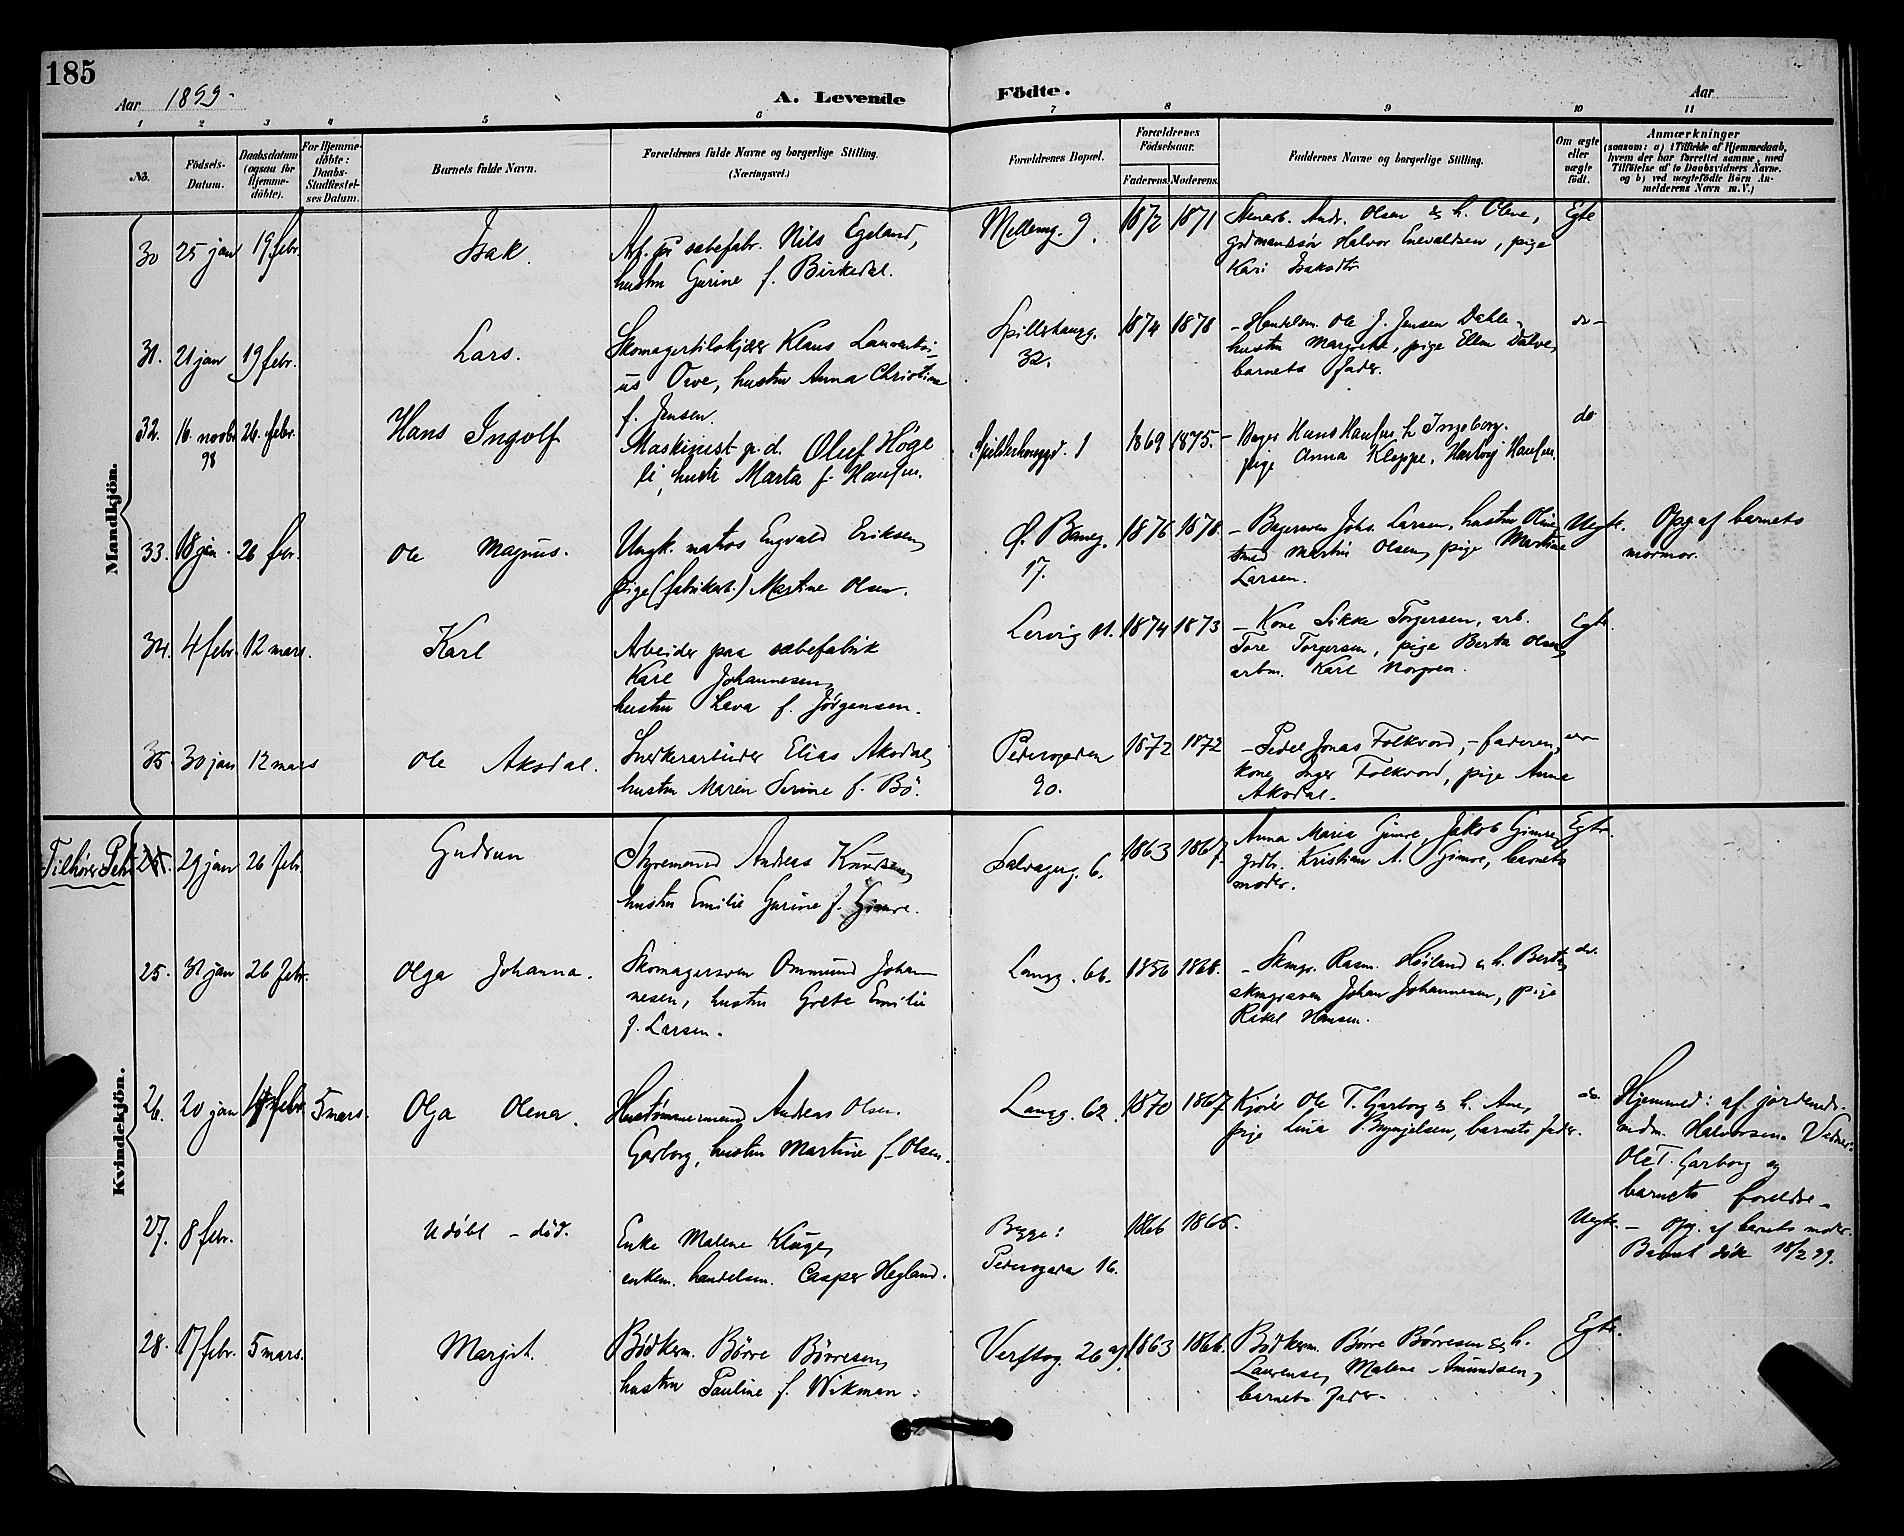 185
Aar 1899.
A. Levende
Födte.
Aar
1 2 3 4 5 6 7 8 9 10 11
No.
Födsels-
Datum.
Daabsdatum
(ogsaa for
Hjemme-
döbte).
For Hjemme-
döbte:
Daabs-
Stadfæstel-
ses Datum.
Barnets fulde Navn.
Forældrenes fulde Navne og borgerlige Stilling.
(Næringsvei.)
Forældrenes Bopæl.
Forældrenes
Födselsaar.
Faderens. Moderens.
Faddernes Navne og borgerlige Stilling.
Om ægte
eller
uægte
født.
Anmærkninger
(saasom: a) i Tilfælde af Hjemmedaab,
hvem der har forrettet samme, med
Tilføielse af to Daabsvidners Navne.
og b) ved uægtefödte Börn An-
melderens Navn m. V.)
Mandkjön.
30 25 jan 19 febr. Isak.
Arb. på sæbefabr. Nils Egeland,
hustru Gurine f. Birkedal.
Mellemg. 9. 1872 1871
Andr. Olsen & h. Oline,
grdmandssön Halvor Enevaldsen, pige
Kari Isaksdtr
Egte
31. 21 jan 19 febr. Lars.
Skomagertilskjærer Klaus Laurenti-
us Owe, hustru Anna Christine
f. Jensen.
Spilderhaugg.
32.
1874 1878
- Handelsm. Ole J. Jensen Dahle,
hustru Margrethe, pige Ellen Dalve,
barnets fader.
do -
32. 16. novbr 26. febr. Hans Ingolf
98
Maskinist p.d. Oluf Höge
li, hustr Marta f. Hansen.
Spilderhauggd. 1 1869 1875.
- Bager Hans Hansen, h Ingeborg.
pige Anna Kleppe, Hartvig Hansen.
do
33. 18 jan. 26 febr. Ole Magnus.
Ungk. matros Engvald Eriksen,
pige (fabrikarb.) Martine Olsen.
Ø. Baneg.
17.
1876 1878.
- Bagersven Johs. Larsen, hustru Oline
smed Martin Olsen, pige Martine
Larsen.
Uegte. Opg. af barnets
mormor.
34. 4 febr. 12 mars. Karl
Arbeider paa sæbefabrik
Karl Johannesen,
hustru Lava f. Jörgensen.
Lervig 11. 1874 1873
- Kone Sikke Torgersen, arb.
Tore Torgersen, pige Berta Olsen,
arbm. Karl
Egte.
35. 30 jan 12 mars Ole Aksdal.
Snekkerarbeider Elias Aksdal,
hustru Maren Serine f. Bö.
Pedersgaden
90.
1872 1872
- Pedel Jonas Folkvord, - faderen,
kone Inger Folkvord, pige Anna
Aksdal.
Kvindekjön.
Tilhører Petri 29 jan 26 febr. Gudrun
Styrmand Andreas Knutsen,
hustru Emilie Gurine f. Gimre.
Salvagerg. 6. 1863 1867.
Anna Maria Gimre, Jakob Gimre,
grdbr. Kristian A. Gimre, barnets
moder.
Egte.
25. 31 jan 26 febr. Olga Johanna.
Skomagersven Ommund Johan-
nesen, hustru Grete Emilie
f. Larsen.
Langg. 66. 1856 1868.
- Skmgr. Rasm. Höiland & h. Berte,
skmgrsven Johan Johannesen, pige
Rakel Hansen.
do.
26. 20 jan febr. 5 mars. Olga Olena.
Hustömmermand Andreas Olsen
Garborg, hustru Martine f. Olsen.
Langg. 62. 1870 1867
Kjörer Ole T. Garborg & h. Ane,
pige Lina Brynjelsen, barnets fader.
do.
Hjemmed: af jordemd.
mdm. Halvorsen. Vidner:
Ole T. Garborg og
barnets foreldre.
27. 8 febr. Udöbt - död.
Enke Malene Kluge,
enkem. handelsm. Casper Hegland.
Begge:
Pedersgaden 16.
1866 1865.
Uegte. - Opg. af barnets moder.
Barnet döde 18/2 99.
28. 17 febr. 5 mars. Margit.
Bödkerm. Börre Börresen,
hustru Pauline f. Wikman.
Verftsg. 26 a). 1863 1866.
Bödkerm. Börre Börresen & h.
Laurense, Malene Amundsen,
barnets fader.
Egte.